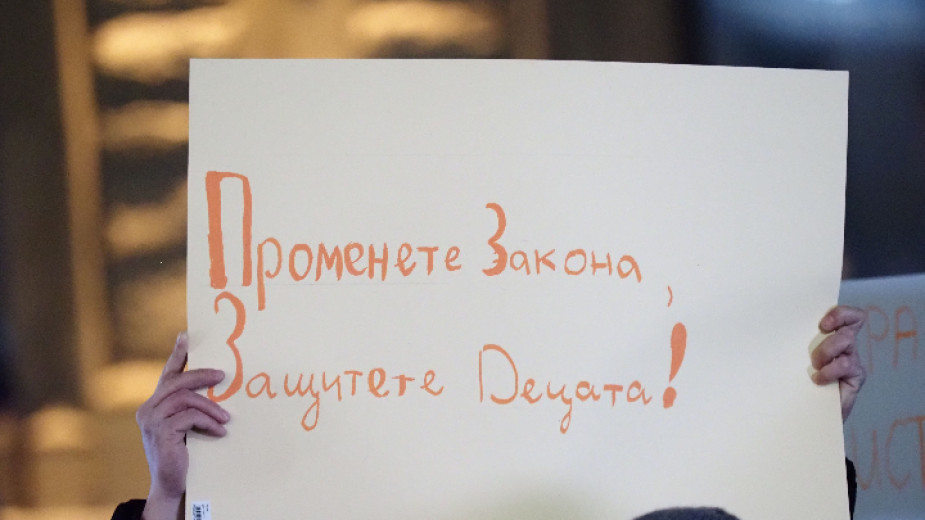 Променете Закона,
Защитете Децата!